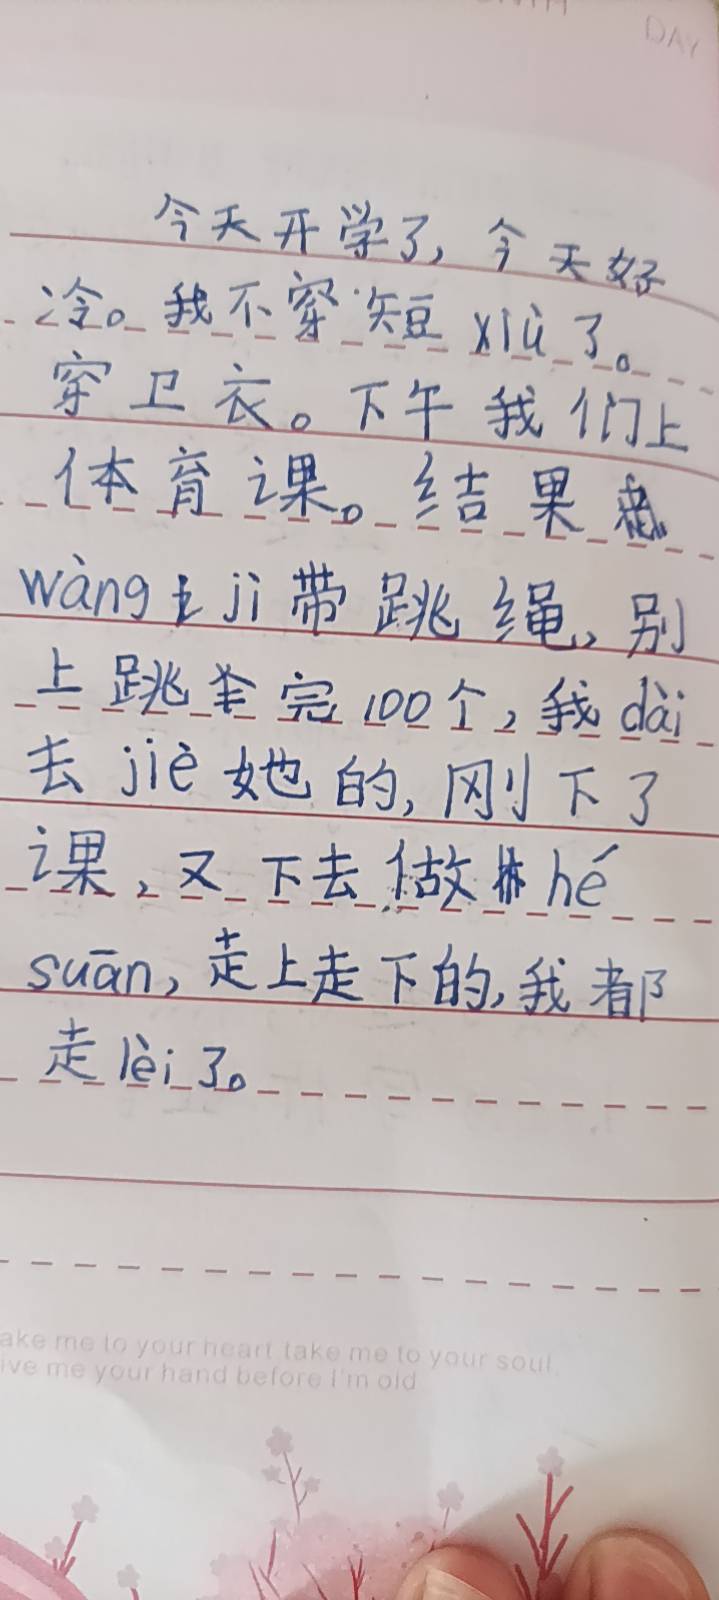 DAY
今天开学了,今天好
冷。我不穿短xiù了。
穿卫衣。下午我们上
体育课。结果
wàng jì带跳绳,别
上跳完100个,我dài
去jiè她的,刚下了
课,又下去做hé
suān,走上走下的,我都
走lèi了。
ake me to your heart take me to your soul
ive me your hand before I'm old